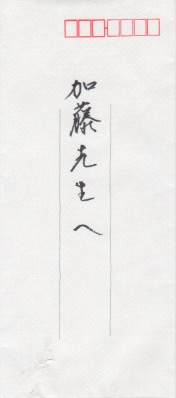 加藤先生へ